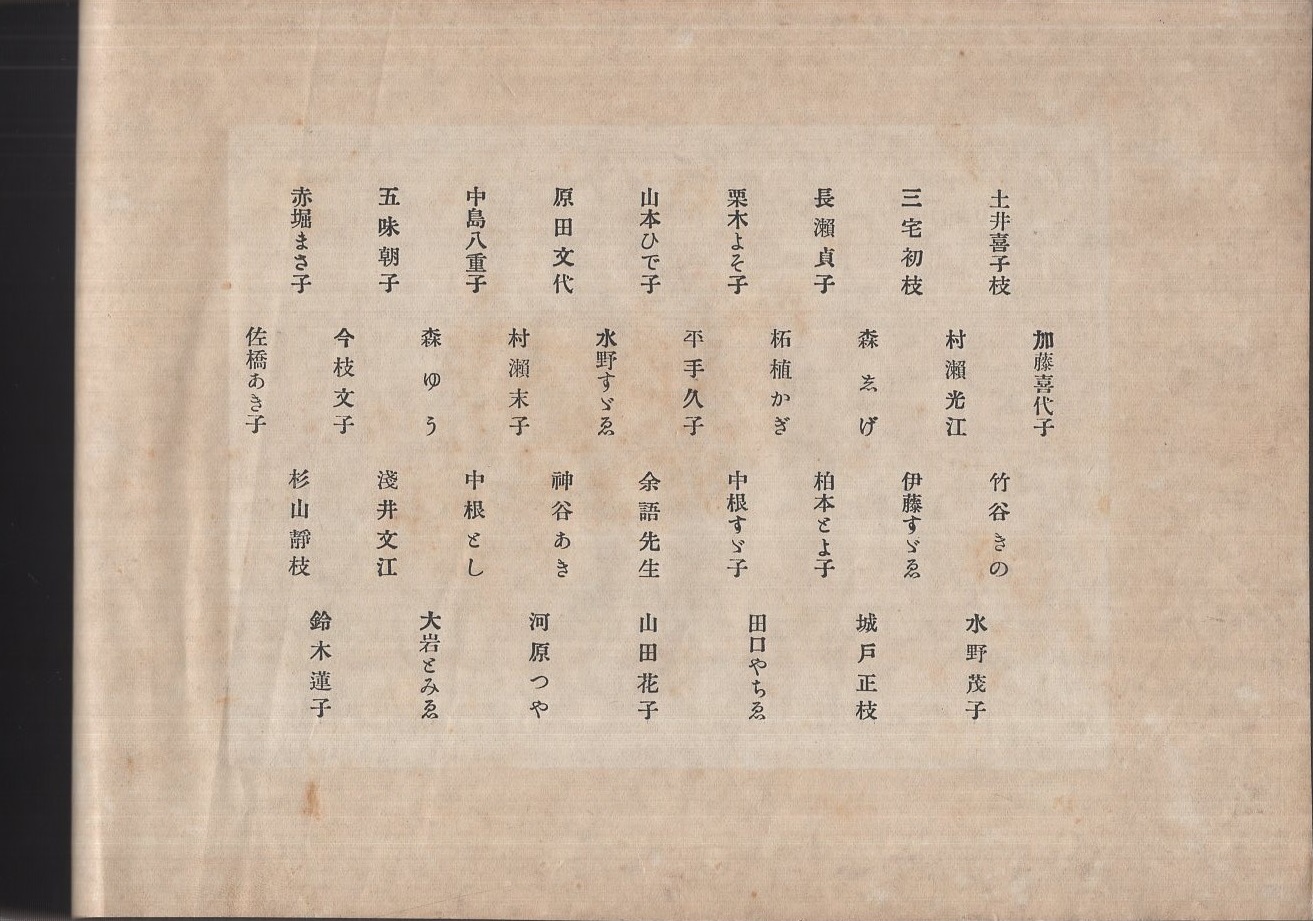 土井喜子枝
三宅初枝
長瀨貞子
栗木よそ子
山本ひで子
原田文代
中島八重子
五味朝子
赤堀まさ子
加藤喜代子
村瀨光江
森ゑげ
柘植かぎ
平手久子
水野すゞゑ
村瀨末子
森ゆう
今枝文子
佐橋あき子
竹谷きの
伊藤すゞゑ
柏本とよ子
中根すゞ子
余語先生
神谷あき
中根とし
淺井文江
杉山靜枝
水野茂子
城戸正枝
田口やちゑ
山田花子
河原つや
大岩とみゑ
鈴木蓮子